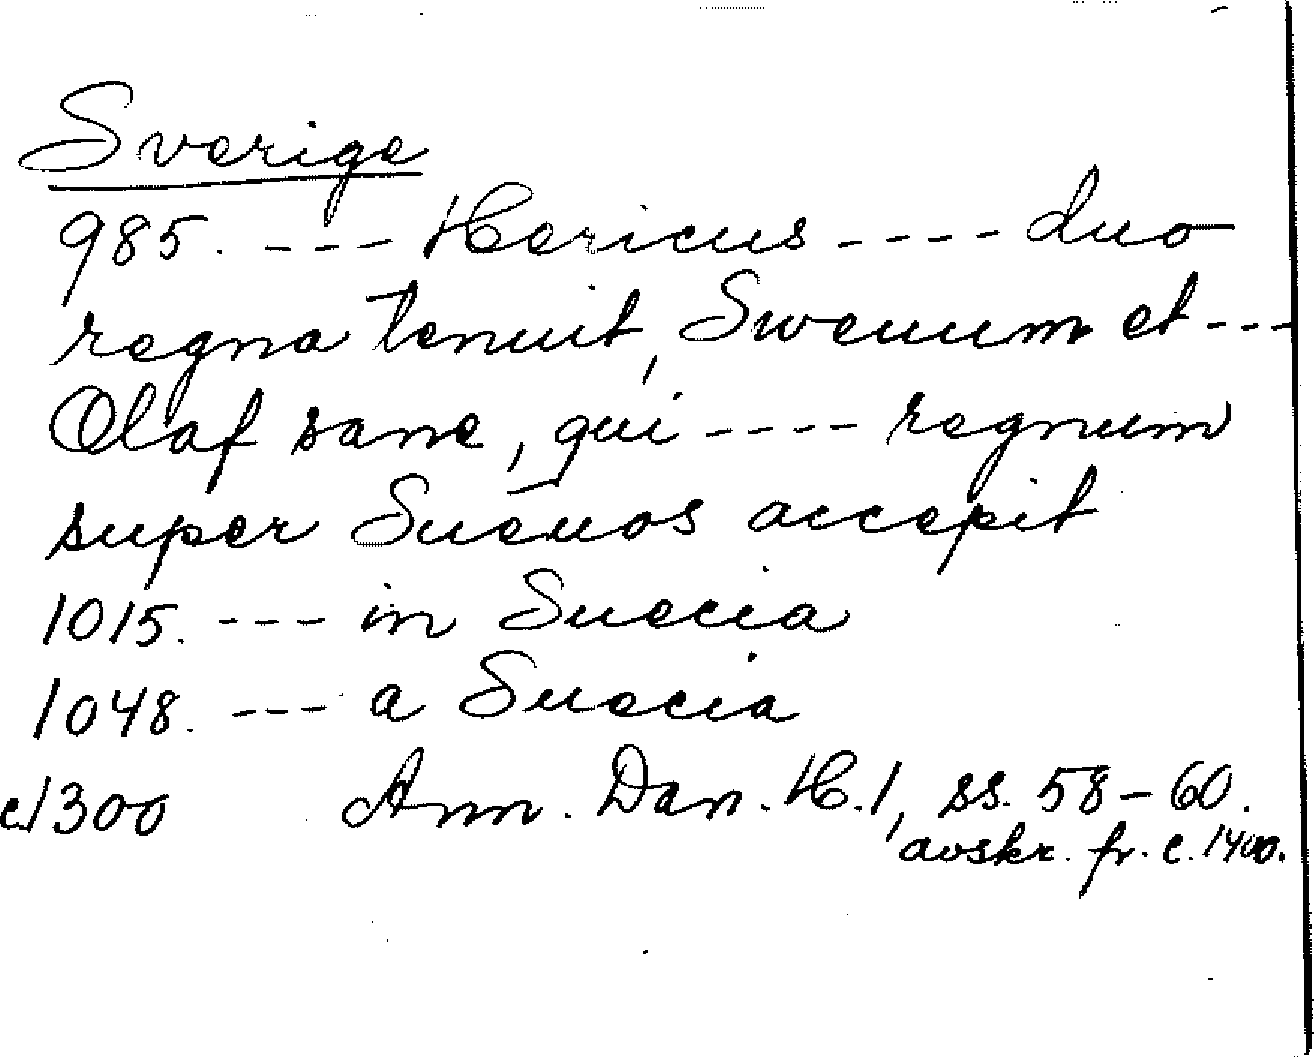 Sverige
985. --- Hericus ---- duo
regna tenuit, Swenum et ---
Olaf sane, qui ---- regnum
super Suenos accepit
1015. --- in Suecia
1048. --- a Suecia
c. 1300 Ann. Dan. H. 1, ss. 58-60.
avskr. fr. c. 1400.